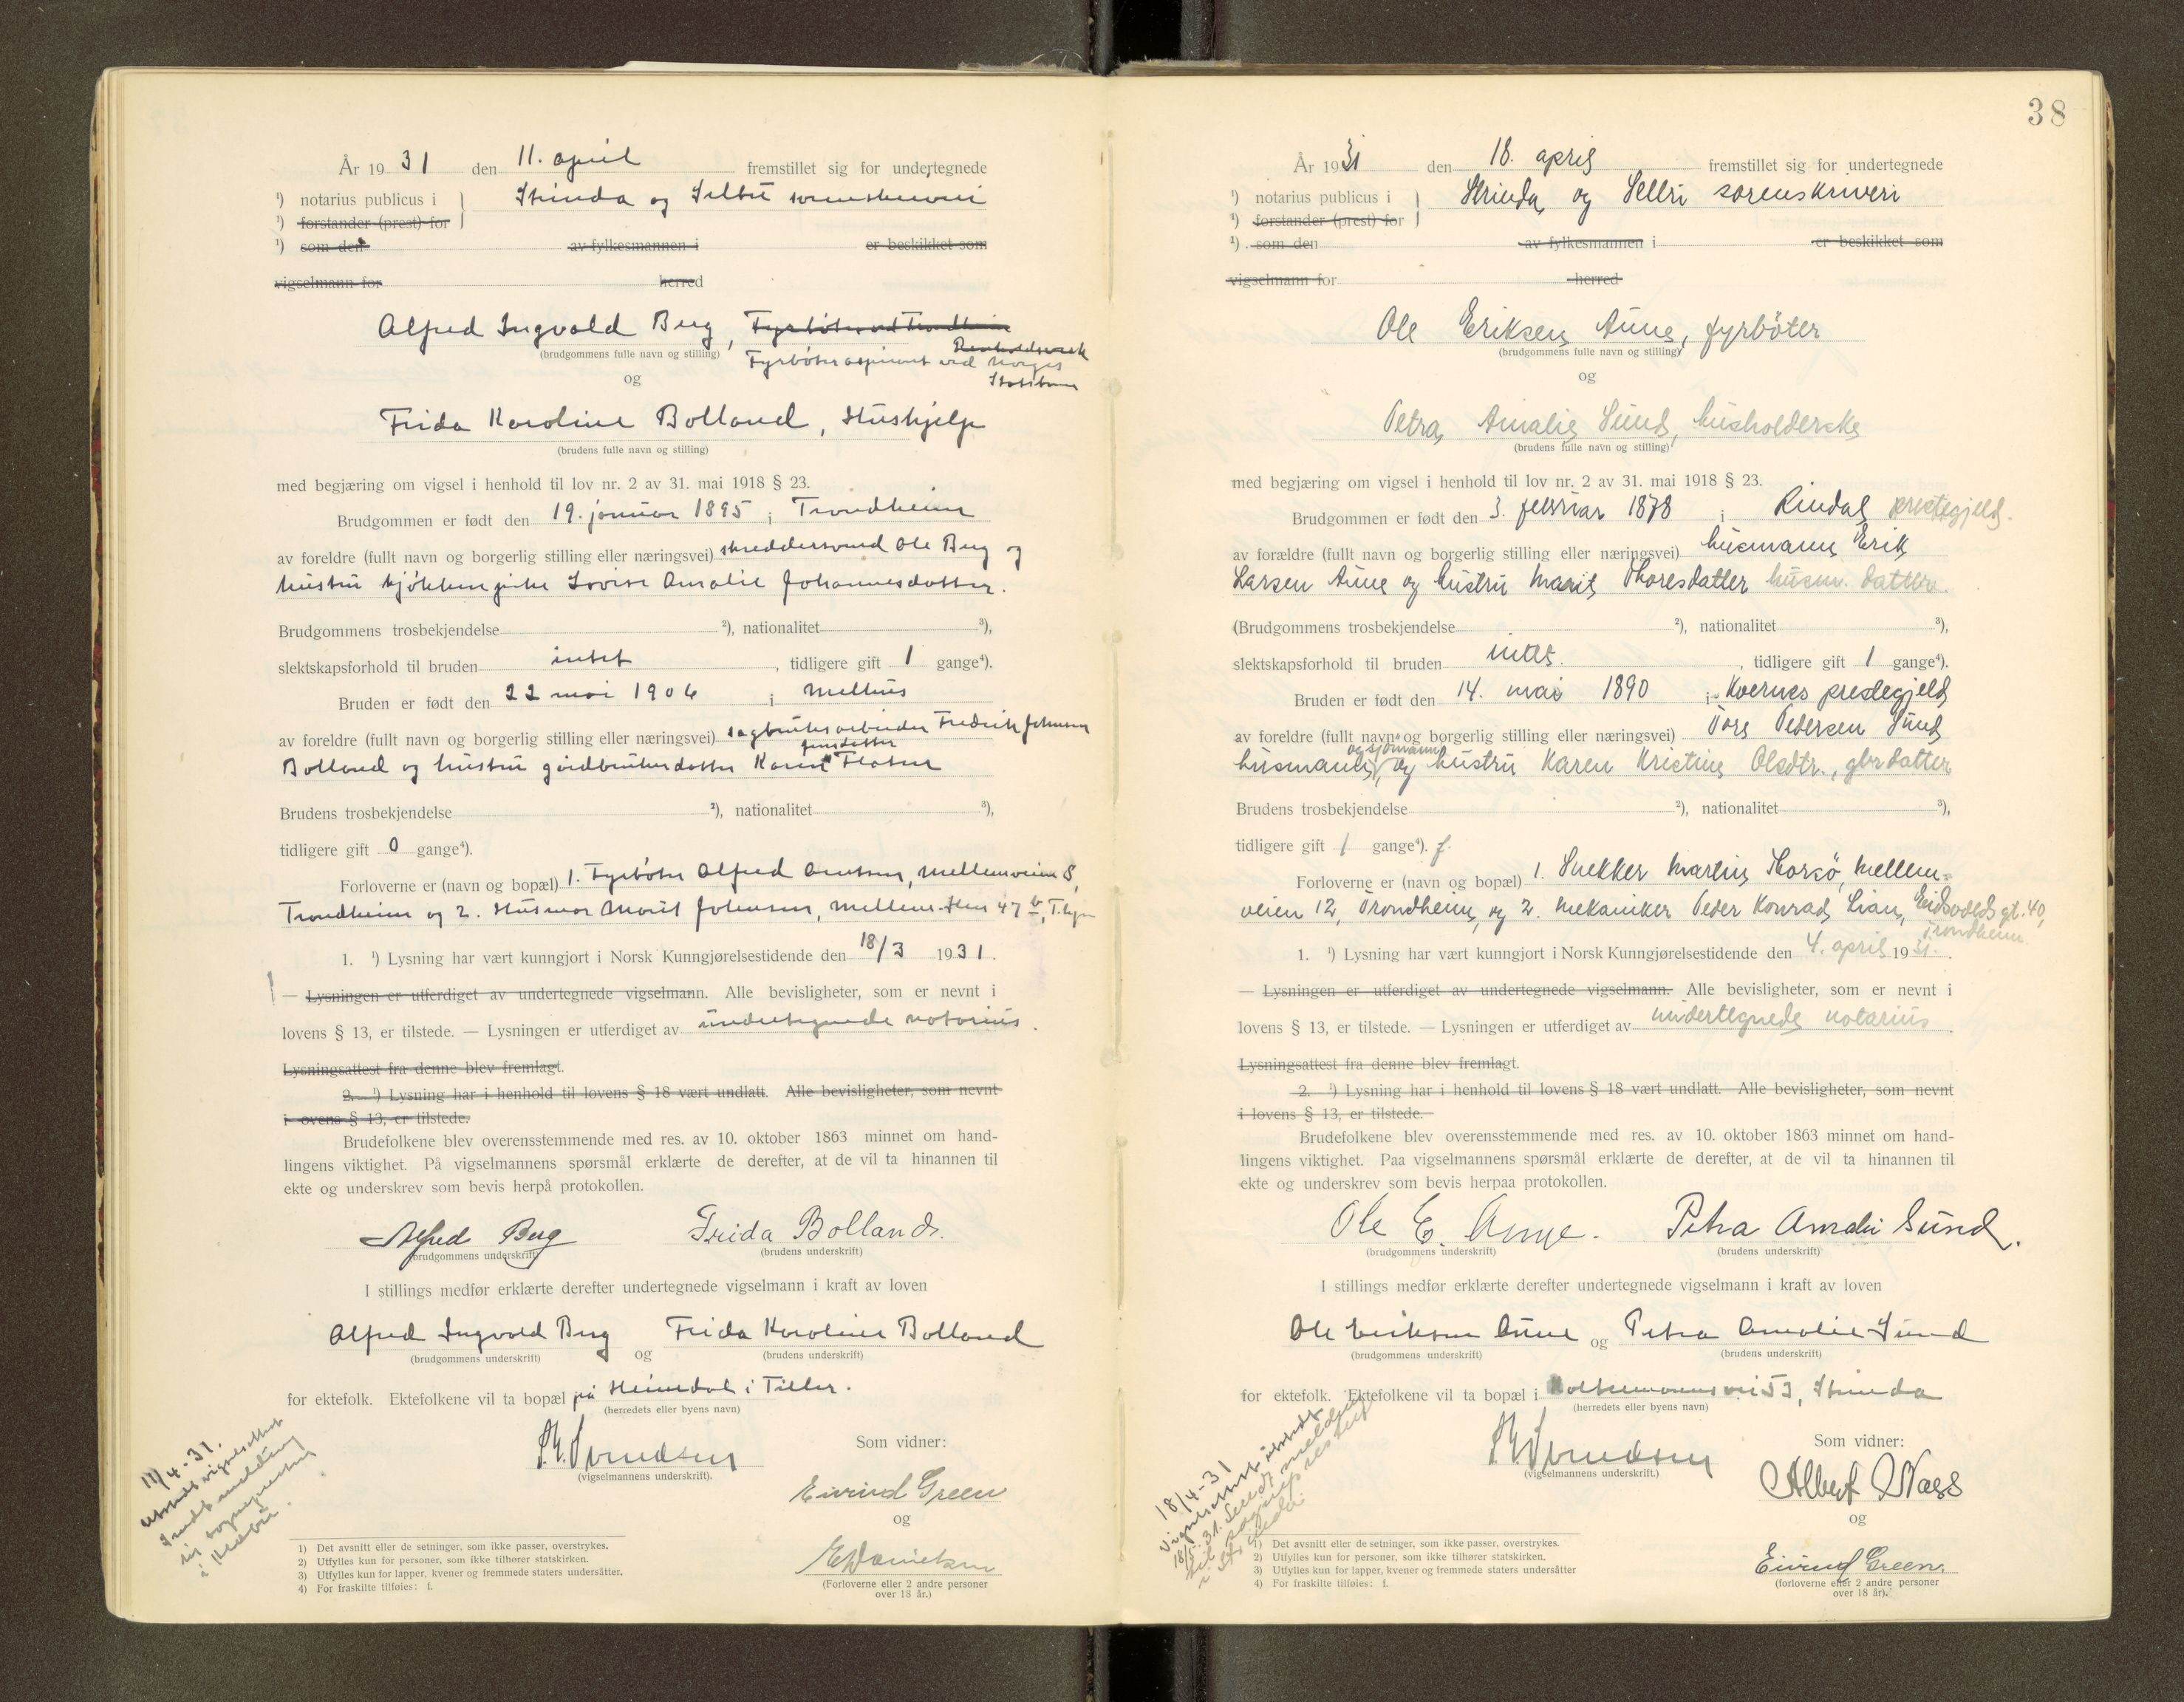 År 1931 den 11. april fremstillet sig for undertegnede
¹) notarius publicus i } Strinda og Selbu sorenskriveri
¹) forstander (prest) for
¹) som den av fylkesmannen i er beskikket som
vigselmann for herred
Alfred Ingvald Berg, Fyrbøter ved Trondheim
Renholdsverk
(brudgommens fulle navn og stilling) Fyrbøteraspirant ved Norges
Statsbaner
og
Frida Karoline Bolland, Hushjelp
(brudens fulle navn og stilling)
med begjæring om vigsel i henhold til lov nr. 2 av 31. mai 1918 § 23.
Brudgommen er født den 19. januar 1895 i Trondheim
av foreldre (fullt navn og borgerlig stilling eller næringsvei) skreddersvend Ole Berg og
hustru kjøkkenpike Lovise Amalie Johannesdatter.
Brudgommens trosbekjendelse ²), nationalitet ³),
slektskapsforhold til bruden intet, tidligere gift 1 gange⁴).
Bruden er født den 22 mai 1906 i Melhus
av foreldre (fullt navn og borgerlig stilling eller næringsvei) sagbruksarbeider Fredrik Johnsen
Bolland og hustru gårdbrukerdatter Karen Jensdatter Flaten
Brudens trosbekjendelse ²), nationalitet ³),
tidligere gift 0 gange⁴).
Forloverne er (navn og bopæl) 1. Fyrbøter Alfred Arntsen, Mellemveien 8,
Trondheim og 2. Husmor Marit Johnsen, Mellem-Ilen 47 b, T.hjm
1. ¹) Lysning har vært kunngjort i Norsk Kunngjørelsestidende den 18/3 1931.
— Lysningen er utferdiget av undertegnede vigselmann. Alle bevisligheter, som er nevnt i
lovens § 13, er tilstede. — Lysningen er utferdiget av undertegnede notarius.
Lysningsattest fra denne blev fremlagt.
2. ¹) Lysning har i henhold til lovens § 18 vært undlatt. Alle bevisligheter, som nevnt
i ovens § 13, er tilstede.
Brudefolkene blev overensstemmende med res. av 10. oktober 1863 minnet om hand-
lingens viktighet. På vigselmannens spørsmål erklærte de derefter, at de vil ta hinannen til
ekte og underskrev som bevis herpå protokollen.
Alfred Berg Frida Bolland.
(brudgommens underskrift) (brudens underskrift)
I stillings medfør erklærte derefter undertegnede vigselmann i kraft av loven
Alfred Ingvald Berg og Frida Karoline Bolland
(brudgommens underskrift) (brudens underskrift)
for ektefolk. Ektefolkene vil ta bopæl på Heimdal i Tiller.
(herredets eller byens navn)
Svendsen
(vigselmannens underskrift).
Som vidner:
Eivind Green
og
E Danielsen
(Forloverne eller 2 andre personer
over 18 år.)
11/4-31.
Utstedt vigselsattest
Sendt melding
til sognepresten
i Klæbu.
1) Det avsnitt eller de setninger, som ikke passer, overstrykes.
2) Utfylles kun for personer, som ikke tilhører statskirken.
3) Utfylles kun for lapper, kvener og fremmede staters undersåtter.
4) For fraskilte tilføies: f.
38
År 1931 den 18. april fremstillet sig for undertegnede
¹) notarius publicus i } Strinda og Selbu sorenskriveri
¹) forstander (prest) for
¹) som den av fylkesmannen i er beskikket som
vigselmann for herred
Ole Eriksen Aune, fyrbøter
(brudgommens fulle navn og stilling)
og
Petra Amalie Sund, husholderske
(brudens fulle navn og stilling)
med begjæring om vigsel i henhold til lov nr. 2 av 31. mai 1918 § 23.
Brudgommen er født den 3. februar 1878 i Rindal prestegjeld.
av forældre (fullt navn og borgerlig stilling eller næringsvei) husmann Erik
Larsen Aune og hustru Marit Thoresdatter husm. datter.
(Brudgommens trosbekjendelse ²), nationalitet ³),
slektskapsforhold til bruden intet., tidligere gift 1 gange⁴).
Bruden er født den 14. mai 1890 i Kvernes prestegjeld
av foreldre (fullt navn og borgerlig stilling eller næringsvei) Tore Pedersen Sund
husmann og sjømann, og hustru Karen Kristine Olsdtr., gbr datter
Brudens trosbekjendelse ²), nationalitet ³),
tidligere gift 1 gange⁴). f.
Forloverne er (navn og bopæl) 1. Snekker Martin Storsø, Mellem-
veien 12, Trondheim, og 2. Mekaniker Peder Konrad Lian, Eidsvolds gt. 40,
Trondheim
1. ¹) Lysning har vært kunngjort i Norsk Kunngjørelsestidende den 4. april 1931.
— Lysningen er utferdiget av undertegnede vigselmann. Alle bevisligheter, som er nevnt i
lovens § 13, er tilstede. — Lysningen er utferdiget av undertegnede notarius.
Lysningsattest fra denne blev fremlagt.
2. ¹) Lysning har i henhold til lovens § 18 vært undlatt. Alle bevisligheter, som nevnt
i lovens § 13, er tilstede.
Brudefolkene blev overensstemmende med res. av 10. oktober 1863 minnet om hand-
lingens viktighet. Paa vigselmannens spørsmål erklærte de derefter, at de vil ta hinannen til
ekte og underskrev som bevis herpaa protokollen.
Ole E. Aune. Petra Amalie Sund.
(brudgommens underskrift) (brudens underskrift)
I stillings medfør erklærte derefter undertegnede vigselmann i kraft av loven
Ole Eriksen Aune og Petra Amalie Sund
(brudgommens underskrift) (brudens underskrift)
for ektefolk. Ektefolkene vil ta bopæl i Holtermannsvei 53, Strinda
(herredets eller byens navn)
Svendsen
(vigselmannens underskrift.)
Som vidner:
Albert Næss
og
Eivind Green.
(forloverne eller 2 andre personer
over 18 år).
18/4-31
Vigselsattest utstedt
18/5.31. Sendt melding
til sogneprest
i Strinda.
1) Det avsnitt eller de setninger, som ikke passer, overstrykes.
2) Utfylles kun for personer, som ikke tilhører statskirken.
3) Utfylles kun for lapper, kvener og fremmede staters undersåtter
4) For fraskilte tilføies: f.